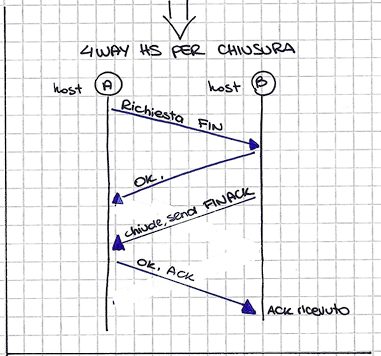 4WAY HS PER CHIUSURA
host A host B
Richiesta FIN
OK,
chiude, send FINACK
OK, ACK
ACK ricevuto